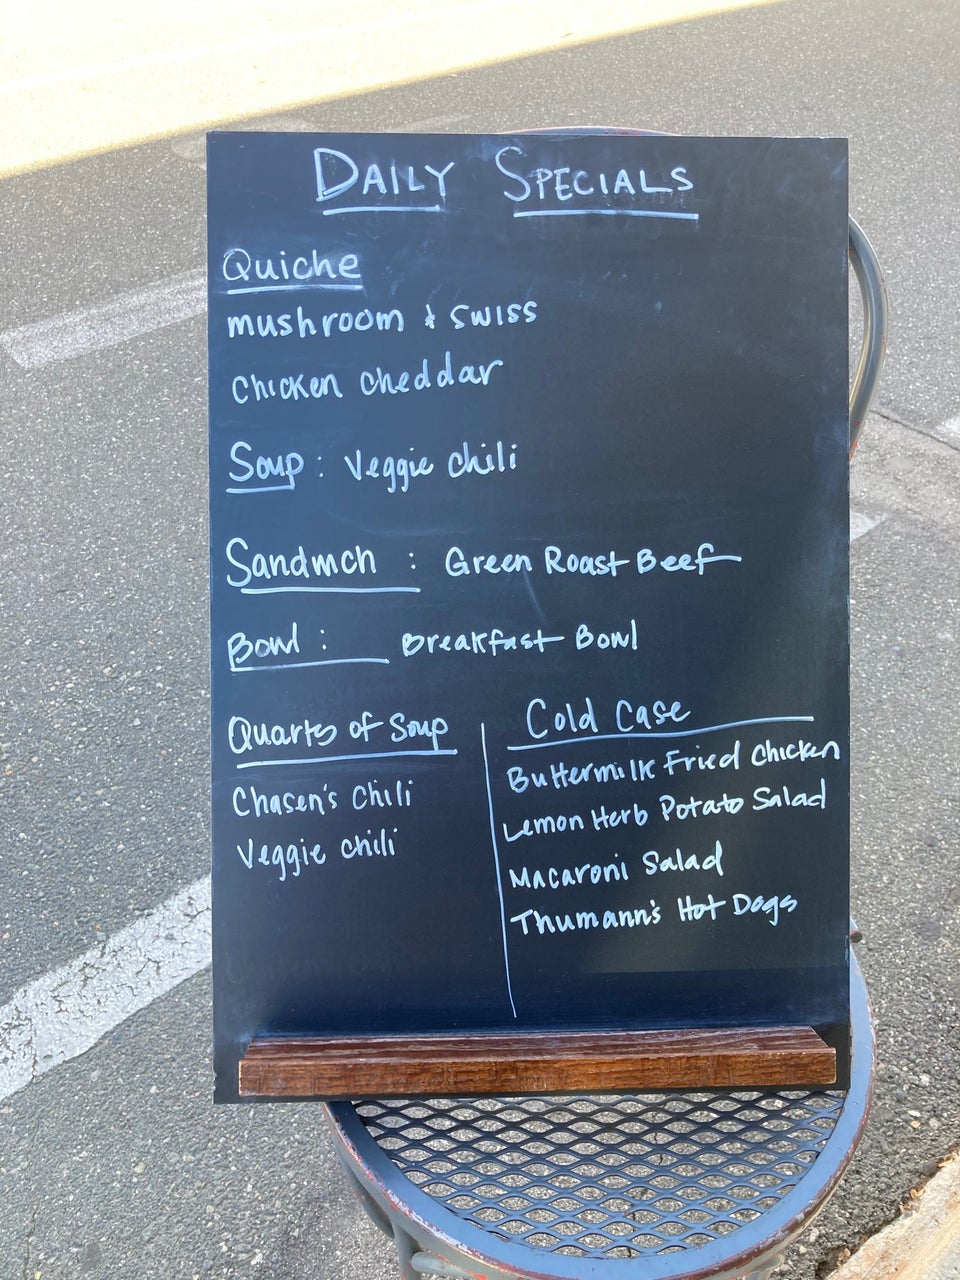 DAILY SPECIALS
Quiche
mushroom & swiss
Chicken cheddar
Soup: Veggie chili
Sandwich : Green Roast Beef
Bowl: Breakfast Bowl
Quarts of Soup
Chasen's Chili
Veggie chili
Cold Case
Buttermilk Fried Chicken
Lemon Herb Potato Salad
Macaroni Salad
Thumann's Hot Dogs